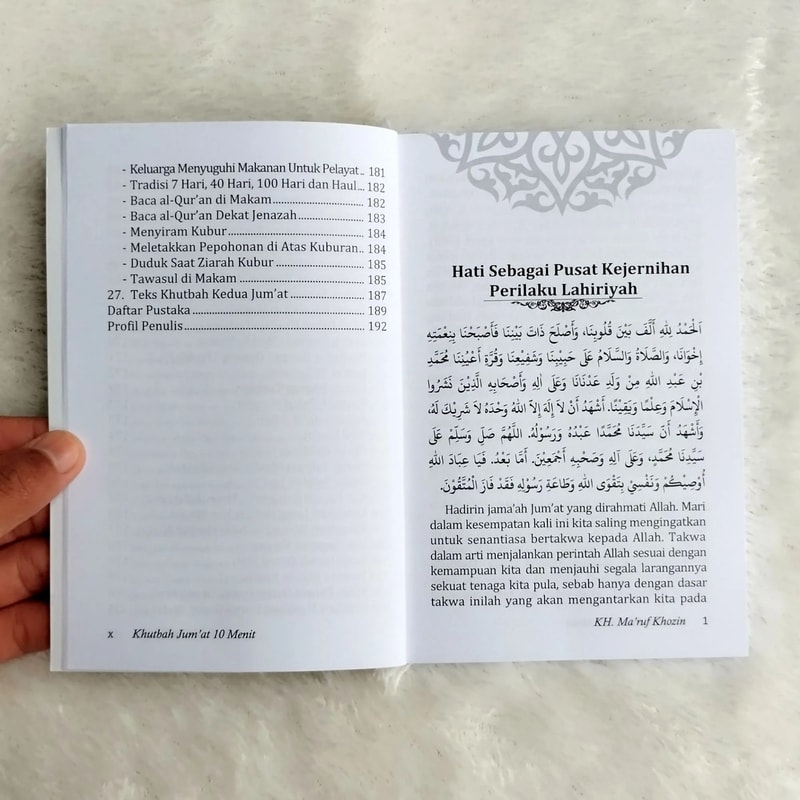 - Keluarga Menyuguhi Makanan Untuk Pelayat.. 181
- Tradisi 7 Hari, 40 Hari, 100 Hari dan Haul... 182
- Baca al-Qur'an di Makam........................ 182
- Baca al-Qur'an Dekat Jenazah................. 183
- Menyiram Kubur................................... 184
- Meletakkan Pepohonan di Atas Kuburan... 184
- Duduk Saat Ziarah Kubur....................... 185
- Tawasul di Makam................................ 185
27. Teks Khutbah Kedua Jum'at................... 187
Daftar Pustaka........................................... 189
Profil Penulis............................................. 192
x Khutbah Jum'at 10 Menit
Hati Sebagai Pusat Kejernihan
Perilaku Lahiriyah
اَلْحَمْدُ لِلهِ أَلَّفَ بَيْنَ قُلُوبِنَا، وَأَصْلَحَ ذَاتَ بَيْنِنَا فَأَصْبَحْنَا بِنِعْمَتِهِ
إِخْوَانًا، وَالصَّلَاةُ وَالسَّلَامُ عَلَى حَبِيْبِنَا وَشَفِيْعِنَا وَقُرَّةِ أَعْيُنِنَا مُحَمَّدِ
بْنِ عَبْدِ اللهِ مِنْ وَلَدِ عَدْنَانَا وَعَلَى الِهِ وَأَصْحَابِهِ الَّذِيْنَ نَشَرُوا
الْإِسْلَامَ وَعِلْمًا وَيَقِيْنًا. أَشْهَدُ أَنْ لَا إِلَهَ إِلاَّ اللهُ وَحْدَهُ لَا شَرِيْكَ لَهُ،
وَأَشْهَدُ أَنَّ سَيِّدَنَا مُحَمَّدًا عَبْدُهُ وَرَسُوْلُهُ. اللَّهُمَّ صَلِّ وَسَلِّمْ عَلَى
سَيِّدِنَا مُحَمَّدٍ، وَعَلَى آلِهِ وَصَحْبِهِ أَجْمَعِيْنَ. أَمَّا بَعْدُ. فَيَا عِبَادَ اللهِ
أُوْصِيْكُمْ وَنَفْسِيْ بِتَقْوَى اللهِ وَطَاعَةِ رَسُوْلِهِ فَقَدْ فَازَ الْمُتَّقُوْنَ.
Hadirin jama'ah Jum'at yang dirahmati Allah. Mari
dalam kesempatan kali ini kita saling mengingatkan
untuk senantiasa bertakwa kepada Allah. Takwa
dalam arti menjalankan perintah Allah sesuai dengan
kemampuan kita dan menjauhi segala larangannya
sekuat tenaga kita pula, sebab hanya dengan dasar
takwa inilah yang akan mengantarkan kita pada
KH. Ma'ruf Khozin 1